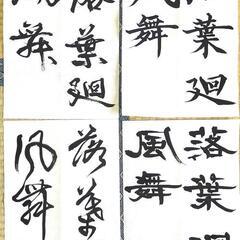 葉廻
風舞
落葉廻
風舞
落葉廻
風舞
落葉
風舞